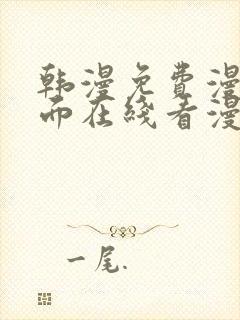 韩漫免费漫
而在线看漫
一尾.